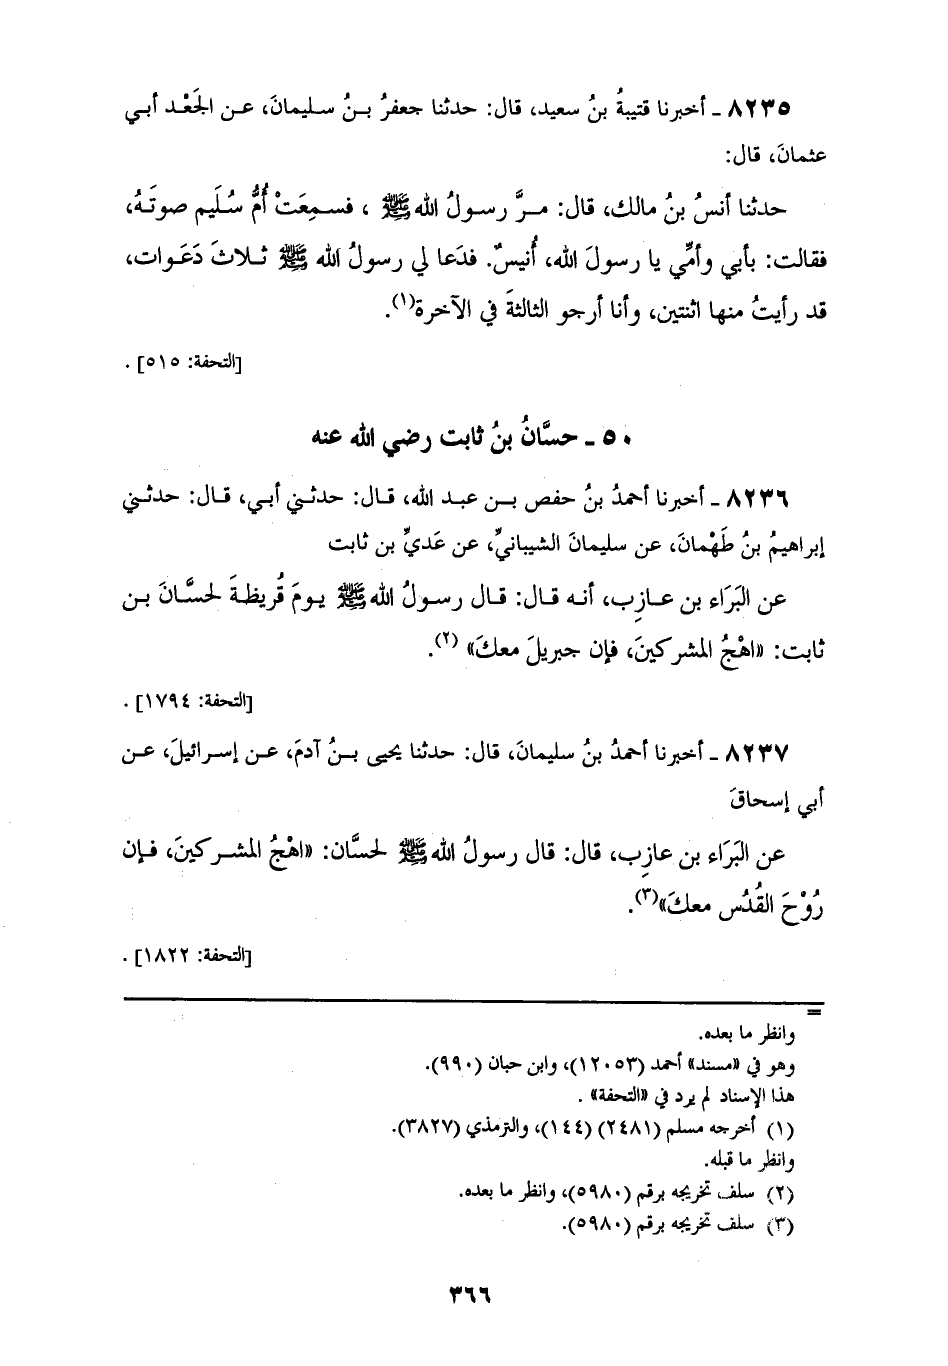 ٨٢٣٥ ـ أخبرنا قتيبةُ بنُ سعيد، قال: حدثنا جعفرُ بـنُ سـليمانَ، عـن الجَعْـد أبـي
عثمانَ، قال:
حدثنا أنسُ بنُ مالك، قال: مـرَّ رسـولُ اللهﷺ ، فسـمِعَتْ أُمُّ سُلَيم صوتَـهُ،
فقالت: بأبي وأمِّي يا رسولَ الله، أُنيسٌ. فدَعا لي رسولُ الله ﷺ ثـلاثَ دَعَـوات،
قد رأيتُ منها اثنتين، وأنا أرجو الثالثةَ في الآخرة(١).
[التحفة: ٥١٥] .
٥٠ ـ حسَّانُ بنُ ثابت رضي الله عنه
٨٢٣٦ ـ أخبرنا أحمدُ بنُ حفص بـن عبـد الله، قـال: حدثـني أبـي، قـال: حدثـني
إبراهيمُ بنُ طَهْمانَ، عن سليمانَ الشيبانيِّ، عن عَديِّ بن ثابت
عن البَرَاء بن عـازِب، أنـه قـال: قـال رسـولُ اللهﷺ يـومَ قُريظـةَ لحسَّـانَ بـن
ثابت: «اهْجُ المشركينَ، فإن جبريلَ معكَ» (٢).
[التحفة: ١٧٩٤] .
٨٢٣٧ ـ أخبرنا أحمدُ بنُ سليمانَ، قال: حدثنا يحيى بـنُ آدمَ، عـن إسـرائيلَ، عـن
أبي إسحاقَ
عن البَرَاء بن عازِب، قال: قال رسولُ اللهﷺ لحسَّان: «اهْجُ المشـركينَ، فـإن
رُوْحَ القُدُس معكَ»(٣).
[التحفة: ١٨٢٢] .
=
وانظر ما بعده.
وهو في «مسند» أحمد (١٢٠٥٣)، وابن حبان (٩٩٠).
هذا الإسناد لم يرد في «التحفة» .
(١) أخرجه مسلم (٢٤٨١) (١٤٤)، والترمذي (٣٨٢٧).
وانظر ما قبله.
(٢) سلف تخريجه برقم (٥٩٨٠)، وانظر ما بعده.
(٣) سلف تخريجه برقم (٥٩٨٠).
٣٦٦